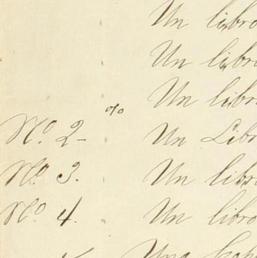 Un libro
Un libro
Un libro
%
No. 2- Un Libr
No. 3. Un libr
No. 4. Un libro
Una